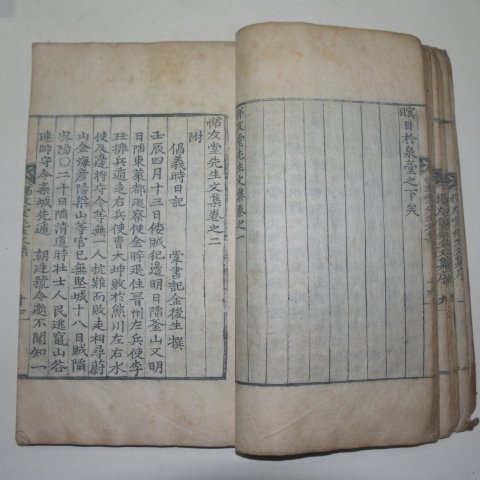 瞑目於泉臺之下矣
悌友堂先生文集卷之一
悌友堂先生文集卷之二
附
倡義時日記 堂書記金後生 撰
壬辰四月十三日倭賊犯邊明日陷釜山又明
日陷東萊都巡察使金睟退住晉州左兵使李
珏擁兵遁走右兵使曺大坤敗於熊川左右水
使及邊將守令等無一人抗難而敗走相尋蔚
山金海彦陽梁山等官已無堅城十八日賊陷
密陽〇二十日陷淸道時壯士人民逃竄山谷
連帥守令棄城先遁 朝廷號令邈不聞知一